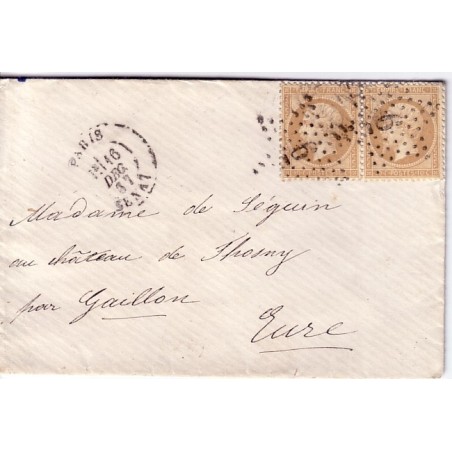 PARIS
16
DEC
67
Madame de Séguin
au château de Thosny
par Gaillon
Eure